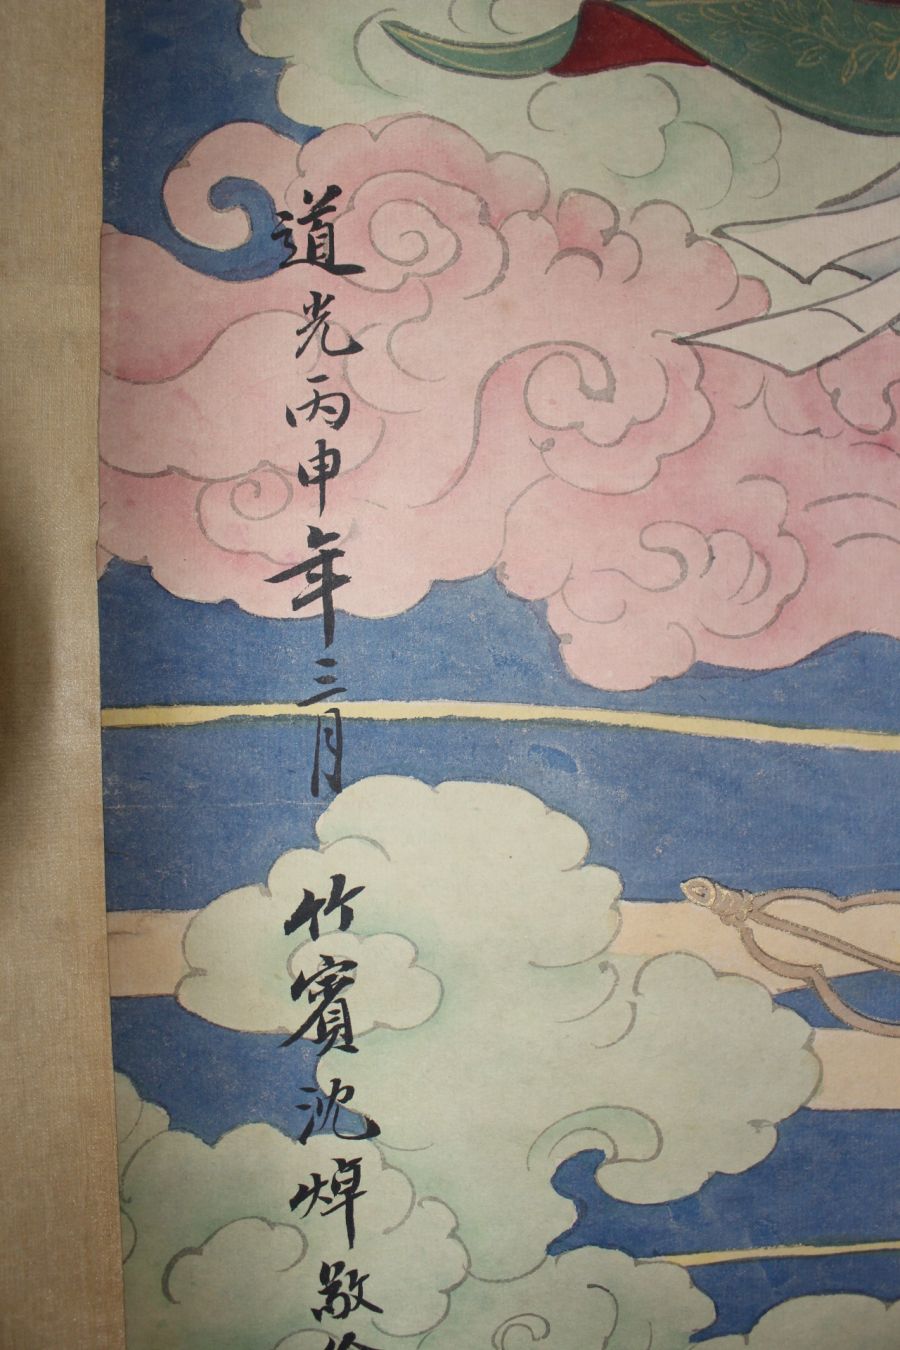 道光丙申年三月竹賓沈焯敬